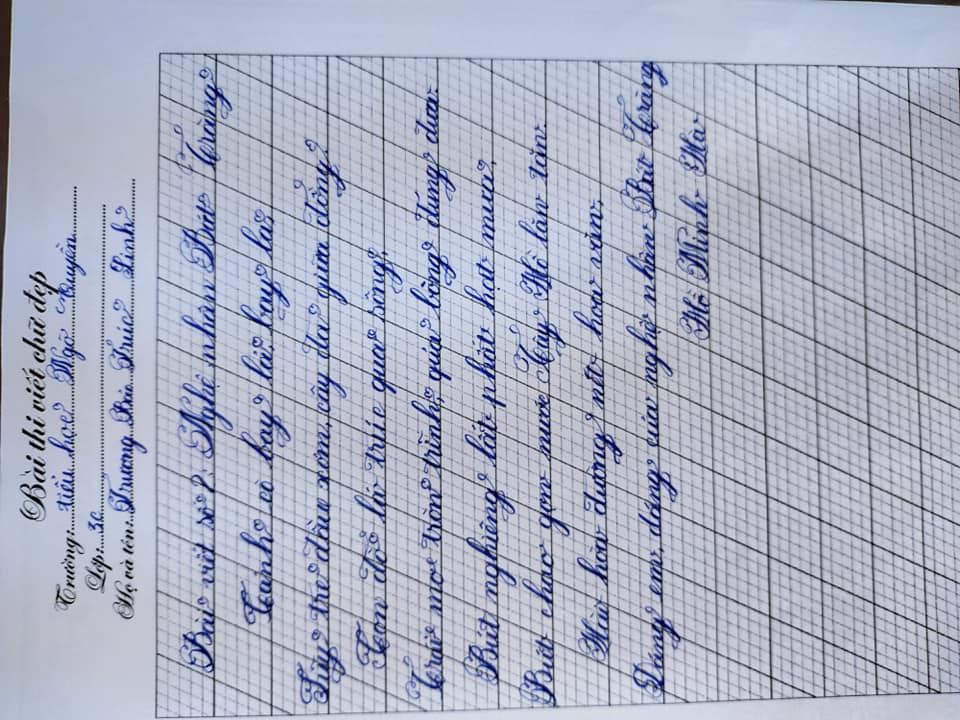 Bài thi viết chữ đẹp
Trường: Tiểu học Ngô Quyền
Lớp: 3C
Họ và tên: Trương Trúc Linh
Bài viết số 2: Nghệ nhân Bát Tràng
Cánh cò bay lả bay la
Lũy tre đầu xóm, cây đa giữa đồng
Con đò lá trúc qua sông
Trái mơ tròn trĩnh, quả bòng đung đưa
Bút nghiêng lất phất hạt mưa
Bút chao gợn nước Tây Hồ lăn tăn
Hài hòa đường nét hoa văn
Dáng em, dáng của nghệ nhân Bát Tràng
Hồ Minh Hà